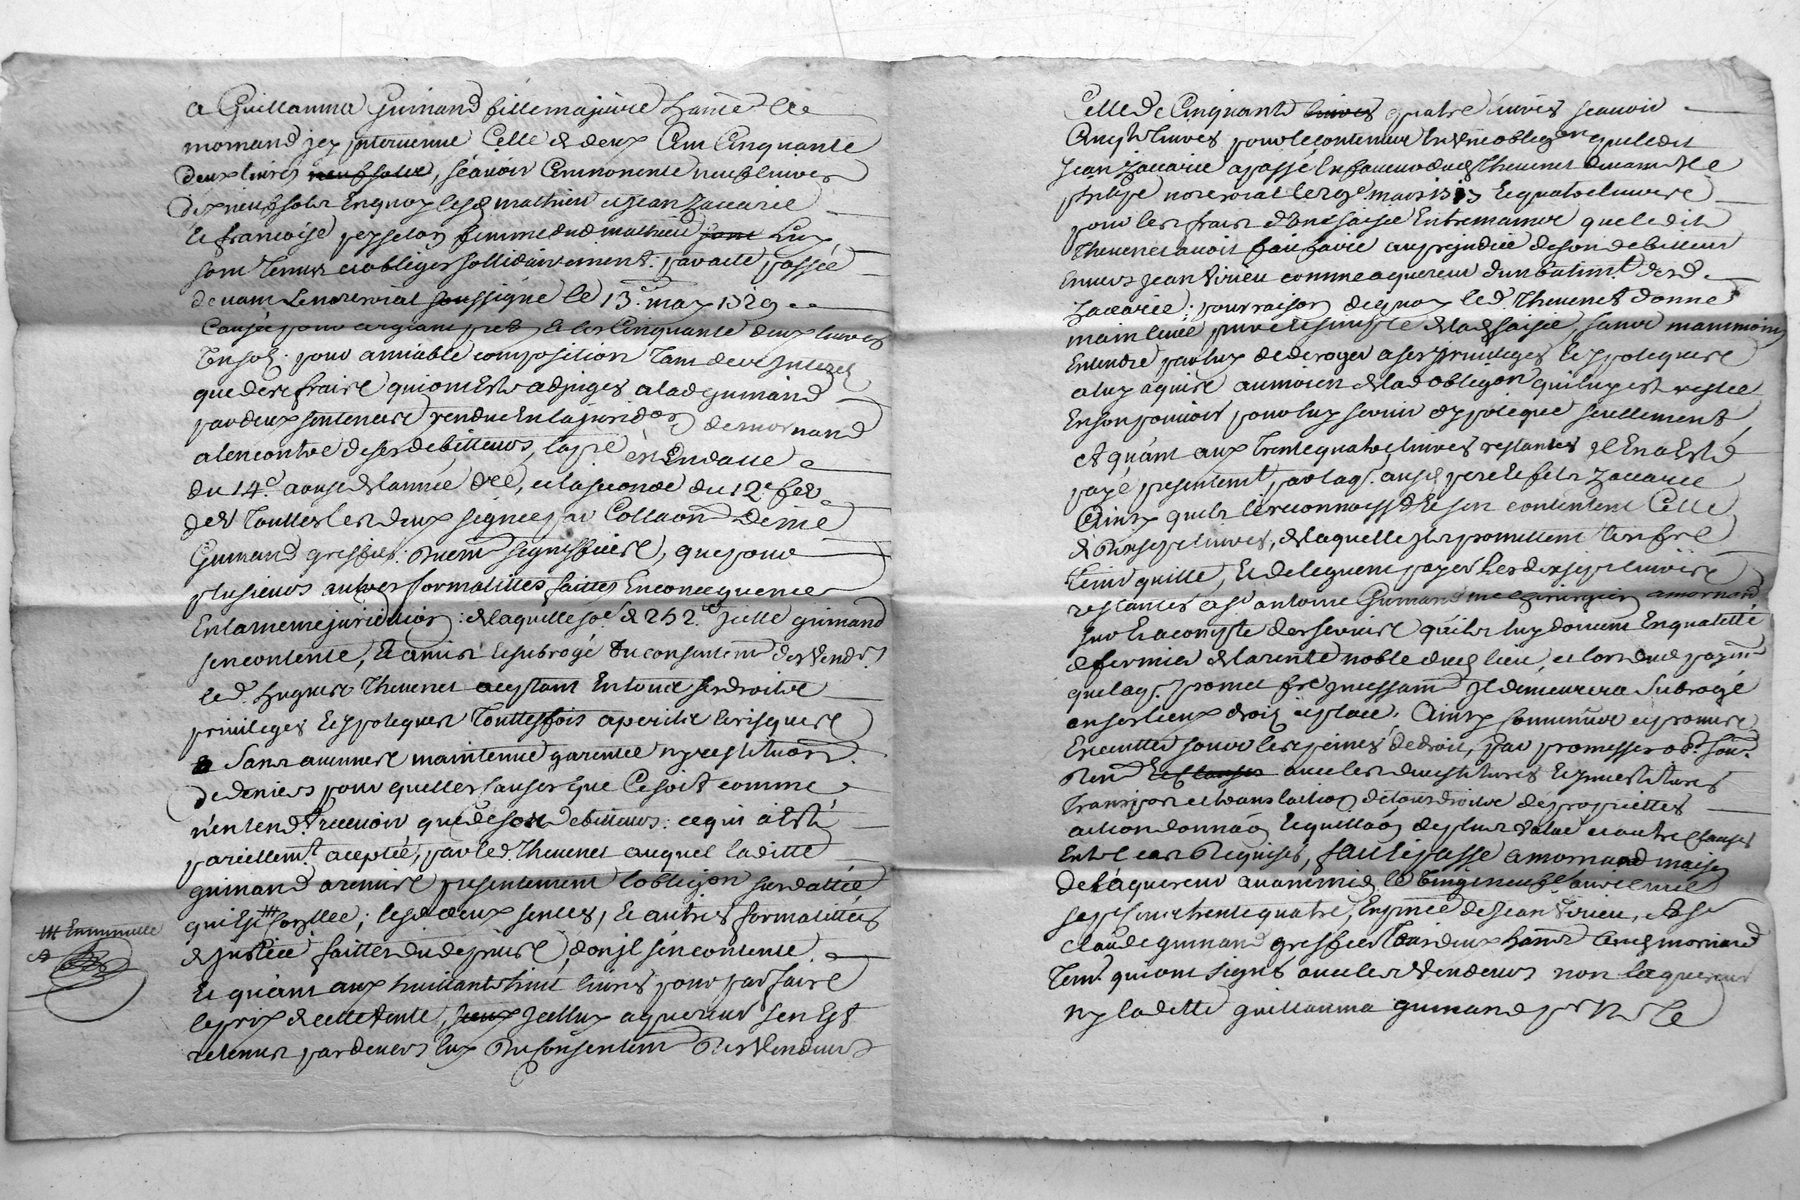 a Guillauma Guinand fille majeure hante de
mornand jcy intervenue Celle de deux Cent Cinquante
deux livres neuf sols, scavoir Cent nonente neuf livres
dix neuf sols en quoy lesd mathieu et Jean Zacarie
et francoise peysselon femme dud mathieu sont Luy
sont tenus et obligés sollidairement par acte passée
devant Le no.re roial soussigné le 13.e may 1729
Causée pour argiant pret, et les Cinquante deux livres
un sol pour amiable composition tant de
que de ses fraix qui ont Esté adjugés a lad guinand
par deux sentences rendue En la jurid.on de mornand
a lencontre de ses debitteurs, la p.re en datte
du 14.e aoust de lannée d.re, et la seconde du 12.e fev.
der touttes les deux signée par Collaon de me
Guinand greffier. duem.t signiffiees, que pour
plusieurs autres formalittes faittes En consequence
En la meme juridiction: de laquelle so.e de 252.l jcelle guinand
sen contente, Et a mis et subrogé du consentem.t des vend.rs
le d. hugues Thevenet aceptant En tous ses droits
privileges et ypoteques touttesfois a perils et risques
Sans aucune maintenue garentie ny restitution
de deniers pour quelles causes que Ce soit comme
n'entend.t recevoir que de son debitteurs: ce qui a Esté
pareillem.t aceptée, par led. Thevenet auquel laditte
guinand a remise presentement lobligõn sus dattée
qui Est Grossoyée; lesd deux sentces, Et autres formalittées
de justice faittes du depuis, dont jl s'en contente.
Et quant aux huittante huit livres pour parfaire
le prix de cette vente, jceux jcelluy aquereur sen Est
retenus pardevers luy du consentem.t des vendeurs
Celle de Cinquante livres quatre livres scavoir
Cinq.te livres pour le contenue En une oblig.on que ledit
Jean Zacarie a passé En faveur dud Thevenet devant M.e
no.re roial le mars 1733 Et quatre livres
pour les frais d'une saisie Entre mains que le dit
Thevenet avoit fait faire au prejudice de son debitteur
Envers Jean Virieu comme aquereur d'un batim.t dud.
Zacarie; pour raison de quoy le d. Thevenet donne
main levée pure et simple de lad saisie, sans neanmoins
Entendre par luy de deroger a ses privileges et ypoteques
a luy aquise au moien de lad obligõn qui luy est restée
En son pouvoir pour luy servir d'ypoteque seullement
Et quant aux trente quatre livres restantes jl En a Esté
payé presentem.t par laq. ausd pere et fils Zacarie
Ainsy quils le reconnoiss.t et sen contentent Celle
de dixsept livres, de laquelle jls promettent l'en f.re
tenir quitte, et de leguem payer les dixsept livres
restantes a s.r antoine Guinand me chirurgien a mornand
sur Et acompte des servis quils luy doivent En qualitté
de fermier de la rente noble dud lieu, et lors dud payem.t
que laq. promet f.re jncessam.t jl demeurera subrogé
en ses lieux droits et place. Ainsy convenue et promise
Executter sous les peines de droit, par promesse ob.
Ren.on Et clauses avec les devestitures Et jnvestitures
transport et translaction de tous droits de proprietés
action donnáon Et quittáon de plus value et autres clauses
En tel cas Requises, fait Et passé a mornand maison
de laquereur avant midy le vingt neufe. avril mil
sept cent trente quatre, En pnce de Jean Virieu, et de s.r
Claude guinand greffier tous deux hants aud mornand
tem.s qui ont signé avec les vendeurs non laquereur
ny la ditte guillauma guinand p.r ne le
ttt Emmulle